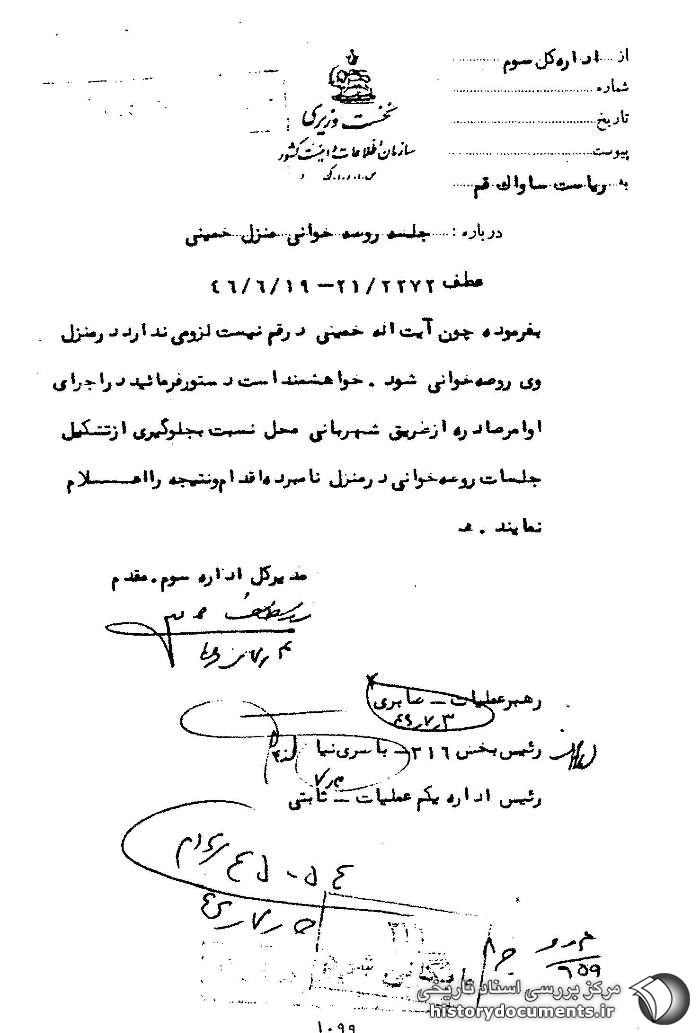 از اداره کل سوم
شماره
تاریخ
پیوست
به ریاست ساواک قم
نخست وزیری
سازمان اطلاعات و امنیت کشور
س.ا.و.ا.ک
درباره : جلسه روضه خوانی منزل خمینی
عطف ۲۱/۲۲۷۲ – ۴۶/۶/۱۹
بفرموده چون آیت اله خمینی در قم نیست لزومی ندارد در منزل
وی روضه خوانی شود . خواهشمند است دستور فرمائید در اجرای
اوامر صادره از طریق شهربانی محل نسبت بجلوگیری از تشکیل
جلسات روضه خوانی در منزل نامبرده اقدام و نتیجه را اعـــلام
نمایند .
مدیر کل اداره سوم . مقدم
رهبر عملیات – صابری
۴۶٫۷٫۳
رئیس بخش ۳۱۶ – یاسری نیا
رئیس اداره یکم عملیات – ثابتی
۶۵۹
مرکز بررسی اسناد تاریخی
historydocuments.ir
۱۰۹۹